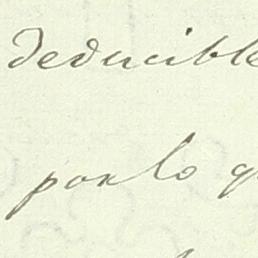 deducible
por lo q